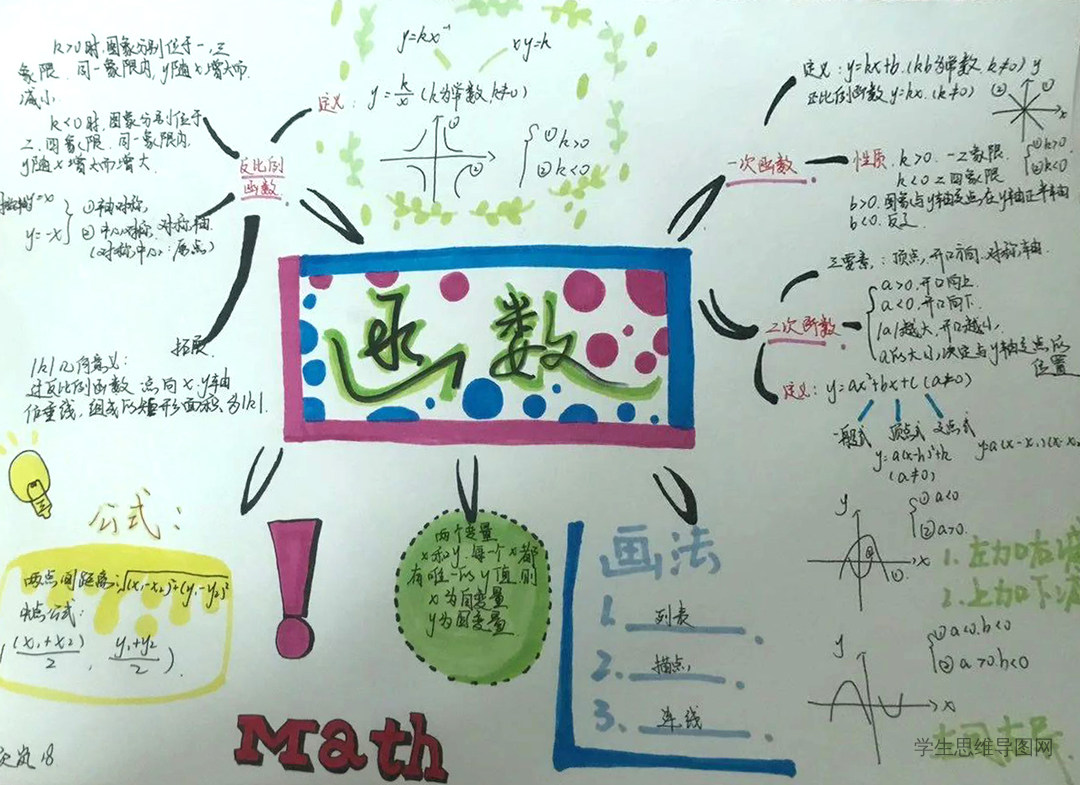 k>0时,图象分别位于一、三
象限,同一象限内,y随x增大而
减小
k<0时,图象分别位于
二、四象限,同一象限内,
y随x增大而增大
y=x
y=-x
①轴对称,
②中心对称,对称轴
(对称中心:原点)
反比例
函数
拓展
|k|几何意义:
过反比例函数一点向x.y轴
作垂线,组成的矩形面积为|k|.
y=kx⁻¹
xy=k
定义:y=k/x(k为常数,k≠0)
①
②
①k>0
②k<0
函数
一次函数
定义:y=kx+b.(k b为常数,k≠0)
正比例函数y=kx.(k≠0)
② ①
x
性质
k>0.一三象限.
k<0二四象限
①k>0.
②k<0
b>0.图象与y轴交点,在y轴正半轴
b<0.反之
二次函数
三要素:顶点,开口方向.对称轴.
a>0.开口向上
a<0,开口向下.
|a|越大,开口越小.
位置
定义:y=ax²+bx+c(a≠0)
一般式 顶点式 交点式
y=a(x-h)²+k
(a≠0)
y=a(x-x₁)(x-x₂
①a<0
②a>0.
y
x
1.左加右减
2.上加下减
①a<0.b<0
②a>0.b<0
y
x
公式:
两点间距离:√(x₁-x₂)²+(y₁-y₂)²
中点公式:
((x₁+x₂)/2,(y₁+y₂)/2).
两个变量
x和y.每一个x都
有唯一的y值,则
x为自变量
y为因变量
画法
1.列表
2.描点
3.连线
Math
18
学生思维导图网